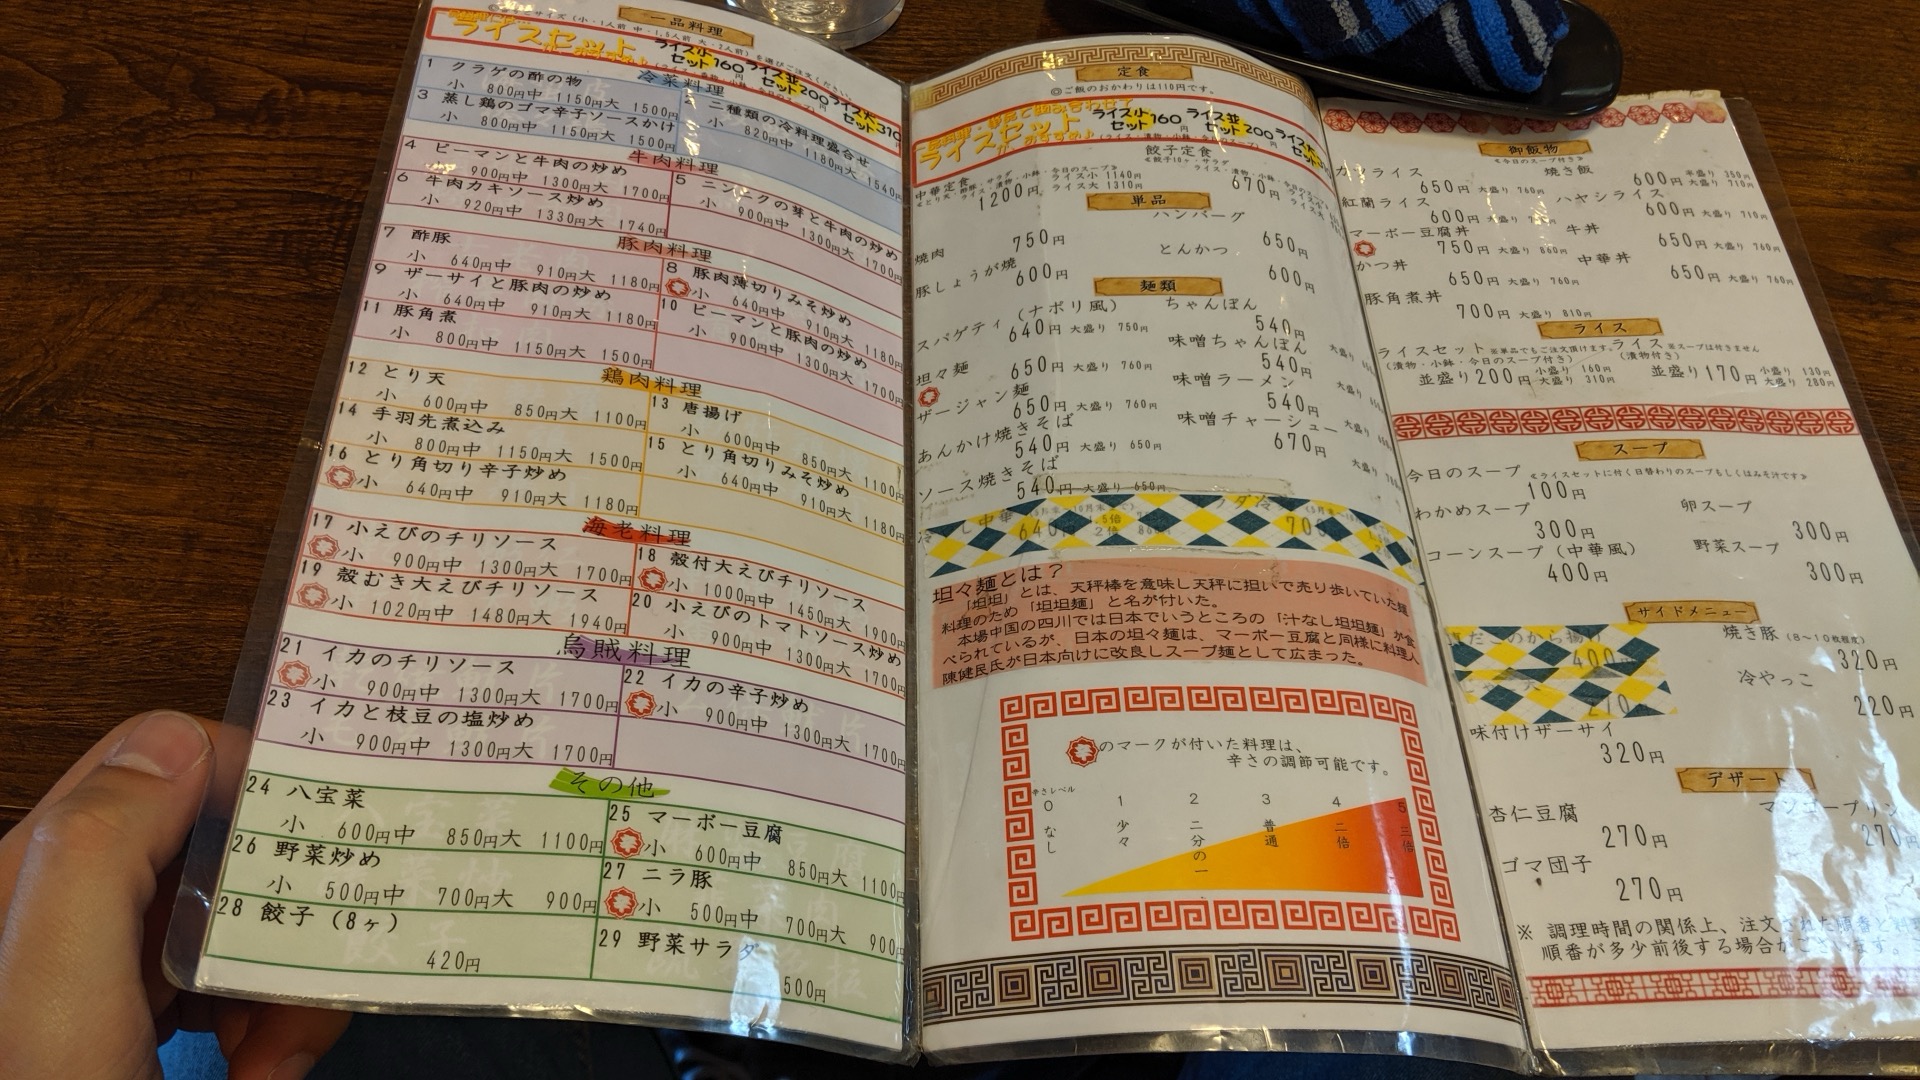 一品料理
ライスセット
ライス小セット160円 ライス並セット200円 ライス大セット310円
冷菜料理
1 クラゲの酢の物
小 800円中 1150円大 1500円
2 二種類の冷料理盛合せ
小 820円中 1180円大 1540円
3 蒸し鶏のゴマ辛子ソースかけ
小 800円中 1150円大 1500円
牛肉料理
4 ピーマンと牛肉の炒め
小 900円中 1300円大 1700円
5 ニンニクの芽と牛肉の炒め
小 900円中 1300円大 1700円
6 牛肉カキソース炒め
小 920円中 1330円大 1740円
豚肉料理
7 酢豚
小 640円中 910円大 1180円
8 豚肉薄切りみそ炒め
小 640円中 910円大 1180円
9 ザーサイと豚肉の炒め
小 640円中 910円大 1180円
10 ピーマンと豚肉の炒め
小 900円中 1300円大 1700円
11 豚角煮
小 800円中 1150円大 1500円
鶏肉料理
12 とり天
小 600円中 850円大 1100円
13 唐揚げ
小 600円中 850円大 1100円
14 手羽先煮込み
小 800円中 1150円大 1500円
15 とり角切りみそ炒め
小 640円中 910円大 1180円
16 とり角切り辛子炒め
小 640円中 910円大 1180円
海老料理
17 小えびのチリソース
小 900円中 1300円大 1700円
18 殻付大えびチリソース
小 1000円中 1450円大 1900円
19 殻むき大えびチリソース
小 1020円中 1480円大 1940円
20 小えびのトマトソース炒め
小 900円中 1300円大 1700円
烏賊料理
21 イカのチリソース
小 900円中 1300円大 1700円
22 イカの辛子炒め
小 900円中 1300円大 1700円
23 イカと枝豆の塩炒め
小 900円中 1300円大 1700円
その他
24 八宝菜
小 600円中 850円大 1100円
25 マーボー豆腐
小 600円中 850円大 1100円
26 野菜炒め
小 500円中 700円大 900円
27 ニラ豚
小 500円中 700円大 900円
28 餃子(8ヶ)
420円
29 野菜サラダ
500円
定食
◎ご飯のおかわりは110円です。
ライスセット
ライス小セット160円 ライス並セット200円
中華定食
1200円 ライス小 1140円 ライス大 1310円
餃子定食
670円
単品
焼肉 750円
ハンバーグ 650円
豚しょうが焼 600円
とんかつ 600円
麺類
スパゲティ(ナポリ風)
640円 大盛り 750円
ちゃんぽん
540円
坦々麺
650円 大盛り 760円
味噌ちゃんぽん
540円
ザージャン麺
650円 大盛り 760円
味噌ラーメン
540円
あんかけ焼きそば
540円 大盛り 650円
味噌チャーシュー
670円
ソース焼きそば
540円 大盛り 650円
坦々麺とは?
「坦坦」とは、天秤棒を意味し天秤に担いで売り歩いていた麺
料理のため「坦坦麺」と名が付いた。
本場中国の四川では日本でいうところの「汁なし坦坦麺」が食
べられているが、日本の坦々麺は、マーボー豆腐と同様に料理人
陳健民氏が日本向けに改良しスープ麺として広まった。
のマークが付いた料理は、
辛さの調節可能です。
辛さレベル
0 1 2 3 4 5
なし 少々 二分の一 普通 二倍 三倍
御飯物
≪今日のスープ付き≫
カツライス
650円 大盛り 760円
焼き飯
600円 半盛り 350円 大盛り 710円
紅蘭ライス
600円
ハヤシライス
600円 大盛り 710円
マーボー豆腐丼
750円 大盛り 860円
牛丼
650円 大盛り 760円
かつ丼
650円 大盛り 760円
中華丼
650円 大盛り 760円
豚角煮丼
700円 大盛り 810円
ライス
ライスセット ※単品でもご注文頂けます。
(漬物・小鉢・今日のスープ付き)
並盛り200円 小盛り 160円 大盛り 310円
ライス ※スープは付きません
(漬物付き)
並盛り170円 小盛り 130円 大盛り 280円
スープ
今日のスープ ≪ライスセットに付く日替わりのスープもしくはみそ汁です≫
100円
わかめスープ
300円
卵スープ
300円
コーンスープ(中華風)
400円
野菜スープ
300円
サイドメニュー
400円
焼き豚(8～10枚程度)
320円
冷やっこ
220円
味付けザーサイ
320円
デザート
杏仁豆腐
270円
マンゴープリン
270円
ゴマ団子
270円
※ 調理時間の関係上、注文された順番と料理
順番が多少前後する場合がございます。